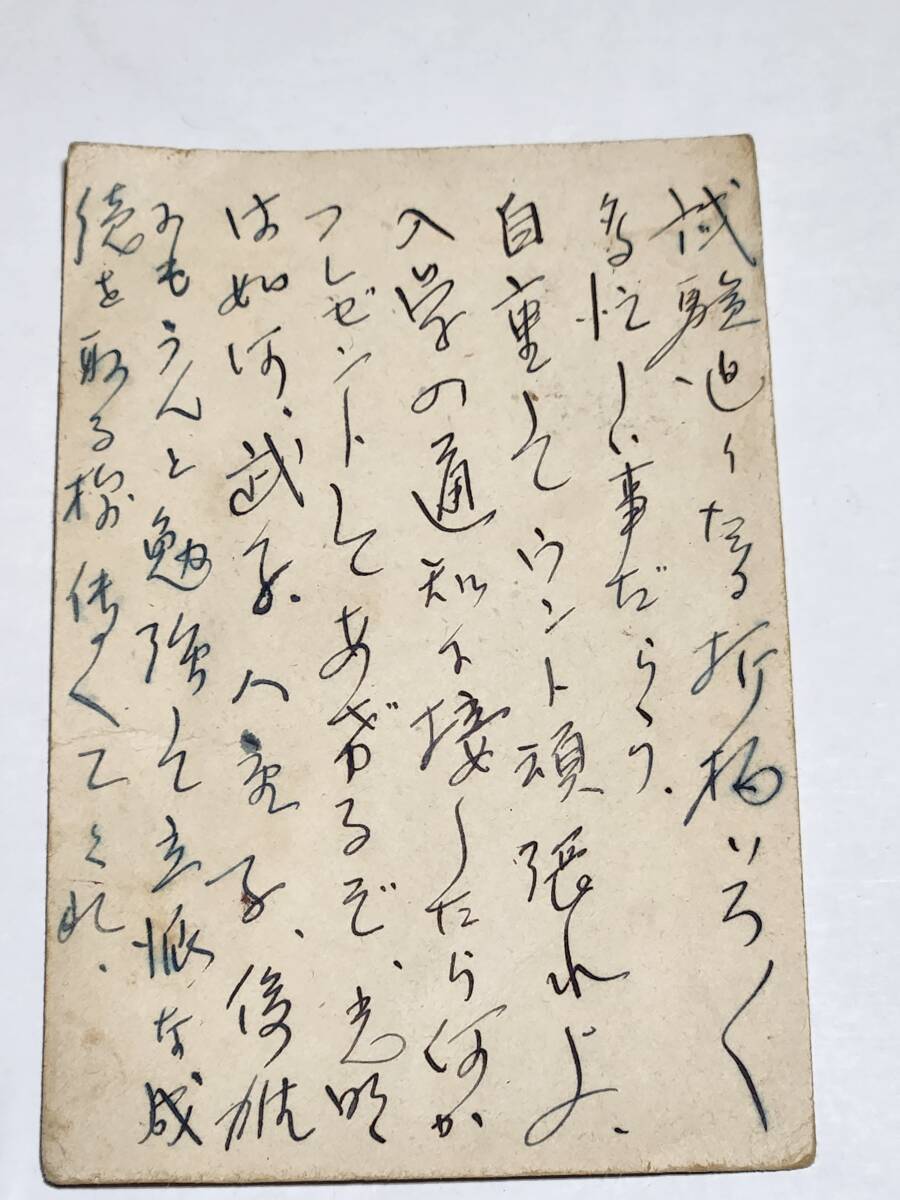 試験迫りたる折柄いろ〱
多忙しい事だらう。
自重してウント頑張れよ。
入学の通知に接したら何か
プレゼントしてあげるぞ、光明
は如何、武子、八重子、俊雄
にもうんと勉強して立派な成
績を取る様傳へてくれ、